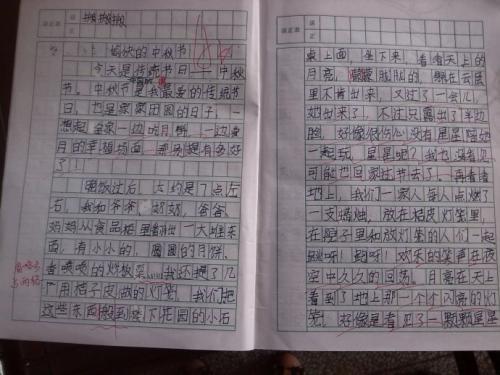 愉快的中秋节
今天是传统节日——中秋
节。中秋节是我最爱的传统节
日，也是家家团圆的日子，一
想起全家一边吃月饼，一边赏
月的幸福场面，那别提有多好
了！
晚饭过后，大约是7点左
右，我和爷爷、奶奶、爸爸、
妈妈从食品柜里翻出一大堆东
西，有小小的、圆圆的月饼、
香喷喷的炒板栗……我还提了几
个用桔子皮做的灯笼，我们把
这些东西搬到楼下花园的小石
桌上面，坐下来，看看天上的
月亮，朦朦胧胧的，躲在云层
里不肯出来，又过了一会儿，
她出来了，不过只露出了半边
脸，好像很伤心没有星星陪她
一起玩，星星呢？我也没看见
可能也回家过节去了……再看看
地上，我们一家人每人点燃了
一支蜡烛，放在桔皮灯笼里，
在院子里和放灯笼的人们一起
玩呀！跑呀！欢乐的笑声在夜
空中久久的回荡。月亮在天上
看到了地上那一个个闪亮的灯
笼，好像是看见了一颗颗星星